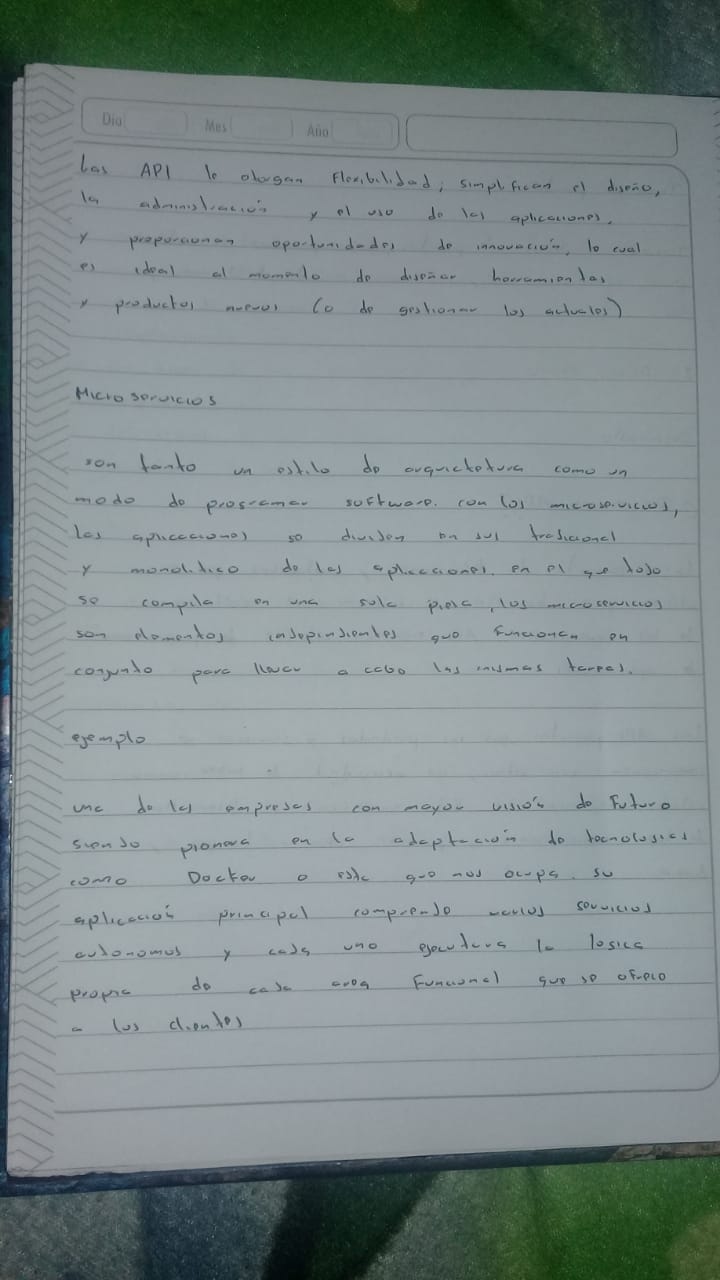 Día Mes Año
Las API le otorgan flexibilidad, simplifican el diseño,
la administración y el uso de las aplicaciones,
y proporcionan oportunidades de innovación, lo cual
es ideal al momento de diseñar herramientas
y productos nuevos (o de gestionar los actuales)
Microservicios
son tanto un estilo de arquictetura como un
modo de programar software. con los microservicios,
las aplicaciones se dividen en sus tradicional
y monolitico de las aplicaciones, en el que todo
se compila en una sola pieza, los microservicios
son elementos independientes que funcionan en
conjunto para llevar a cabo las mismas tareas.
ejemplo
una de las empresas con mayor visión de futuro
siendo pionera en la adaptación de tecnologias
como Docker o este que nos ocupa. su
aplicación principal comprende varios servicios
autonomos y cada uno ejecutara la logica
propia de cada area funcional que se ofrece
a los clientes